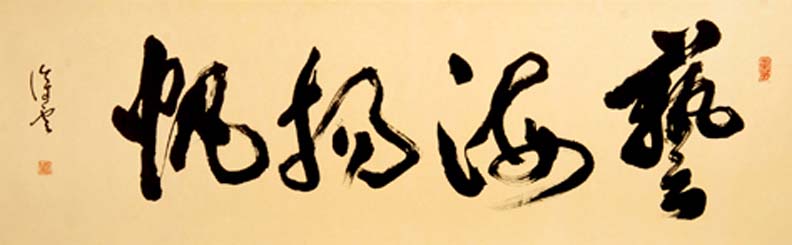 藝海揚帆